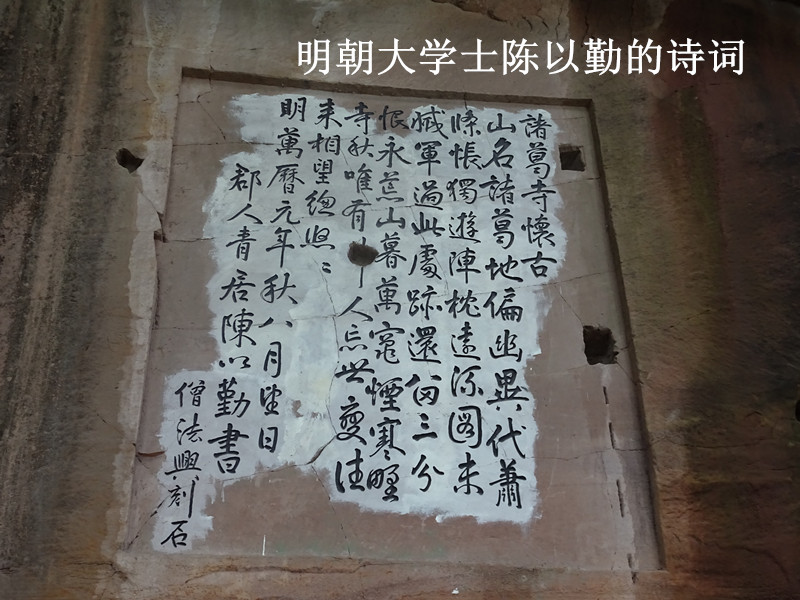 明朝大学士陈以勤的诗词
諸葛寺懷古
山名諸葛地偏幽異代蕭
條悵獨遊陣枕遠流圖未
滅軍過此處跡還留三分
恨永荒山暮萬竈煙寒野
寺秋唯有人忘世變往
来相望總悠々
明萬曆元年秋八月望日
郡人青居陳以勤書
僧法興刻石